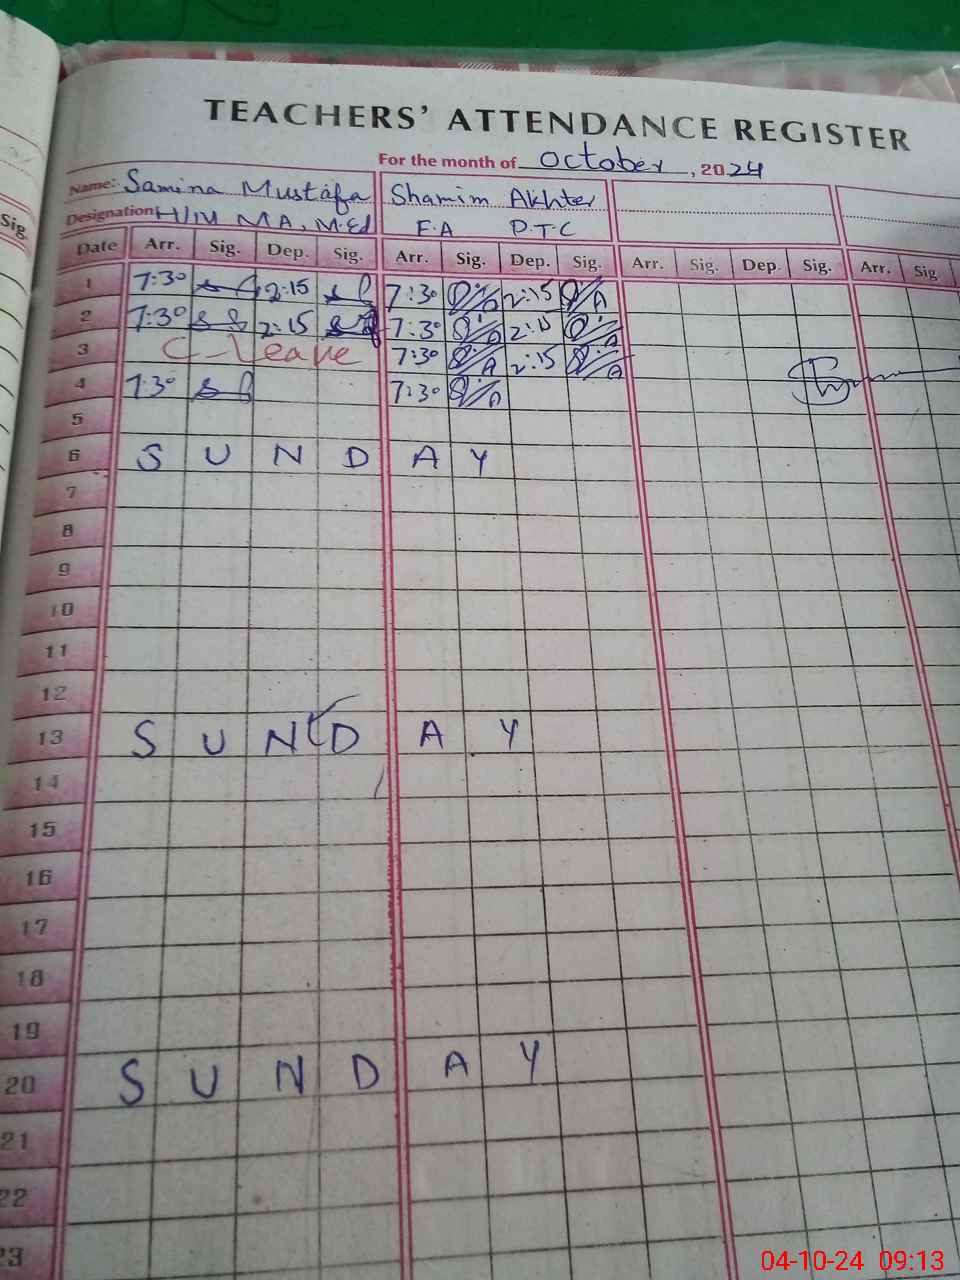 TEACHERS' ATTENDANCE REGISTER
For the month of October, 2024
Name: Samina Mustafa Shamim Akhter
Designation H/M MA, M.Ed F.A P.T.C
Sig.
Date Arr. Sig. Dep. Sig. Arr. Sig. Dep. Sig. Arr. Sig. Dep. Sig. Arr. Sig.
1 7:30 2:15 7:30 2:15
2 7:30 2:15 7:30 2:15
3 C-Leave 7:30 2:15
4 7:30 7:30
5
6 S U N D A Y
7
8
9
10
11
12
13 S U N D A Y
14
15
16
17
18
19
20 S U N D A Y
21
22
23
04-10-24 09:13